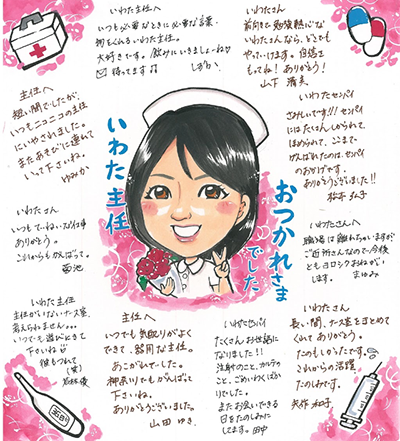 いわた主任へ
いつも必要なときに必要な言葉
をくれるいわた主任。
大好きです。飲みにいきましょーね
待ってます
しずか
いわたさん
前向きで勉強熱心な
いわたさんなら、どこでも
やっていけます。自信を
もってね！ありがとう！
山下 清美
主任へ
短い間でしたが、
いつもニコニコの主任
にいやされました。
またあそびに連れて
いって下さいね。
ゆみか
いわたセンパイ
さみしいです!!! センパイ
にはたくさんしかられて、
ほめられて、ここまで
がんばれたのは、センパイ
のおかげです。
ありがとうございました!!
桜井 弘子
いわた主任
おつかれさま
でした
いわたさん
いつもていねいな仕事
ありがとう。
これからもがんばって。
菊池
いわたさんへ
職場は離れちゃいますが
ご近所さんなので、今後
ともヨロシクおねがい
します。 まゆみ
いわた主任
主任がいないナース室、
考えられません...
いつでも遊びにきて
下さいね
手みやげもって
(笑)
若林 優
主任へ
いつでも気配りがよく
できて、器用な主任。
あこがれでした。
神奈川でもがんばって
下さいね。
ありがとうございました。
山田 ゆき
いわたセンパイ
たくさんお世話に
なりました!!
注射のこと、カルテの
こと、ごめいわくばかり
でした。
またお会いできる
日をたのしみに
してます。田中
いわたさん
長い間、ナース室をまとめて
くれてありがとう。
たのもしかったです。
これからの活躍
たのしみです。
矢作 和子